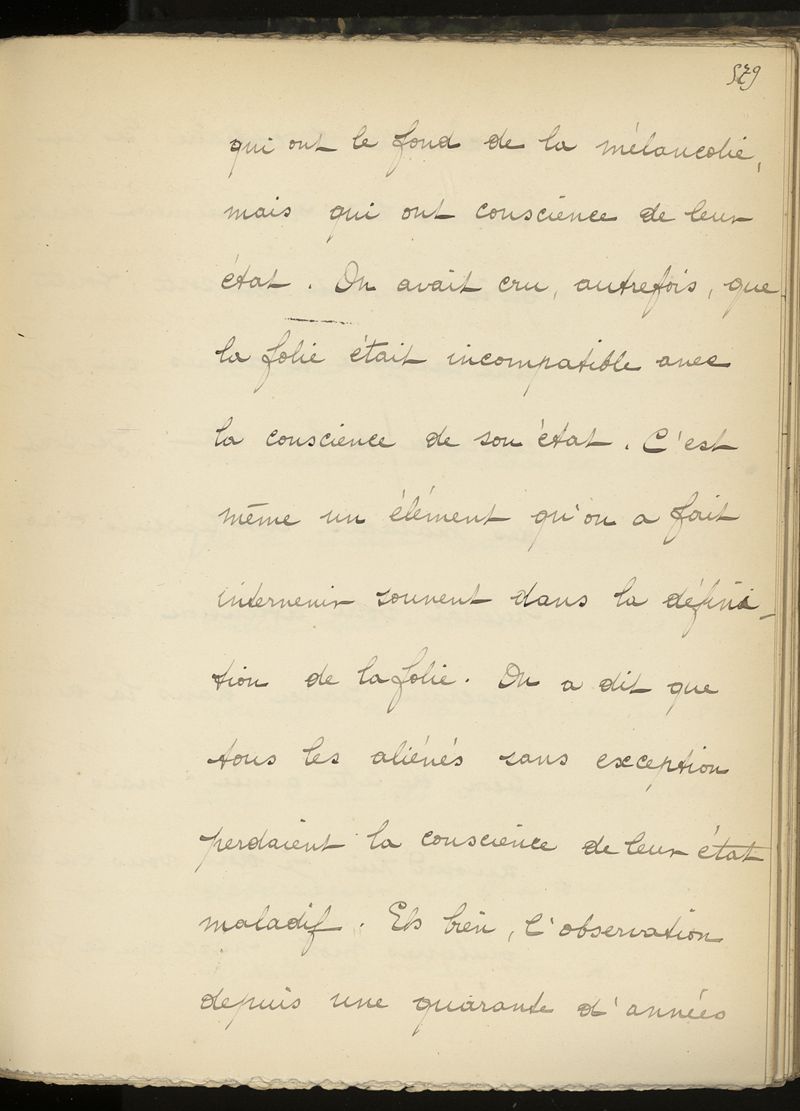 579
qui ont le fond de la mélancolie,
mais qui ont conscience de leur
état. On avait cru, autrefois, que
la folie était incompatible avec
la conscience de son état. C'est
même un élément qu'on a fait
intervenir souvent dans la défini-
tion de la folie. On a dit que
tous les aliénés sans exception
perdaient la conscience de leur état
maladif. Eh bien, l'observation
depuis une quarante d'années